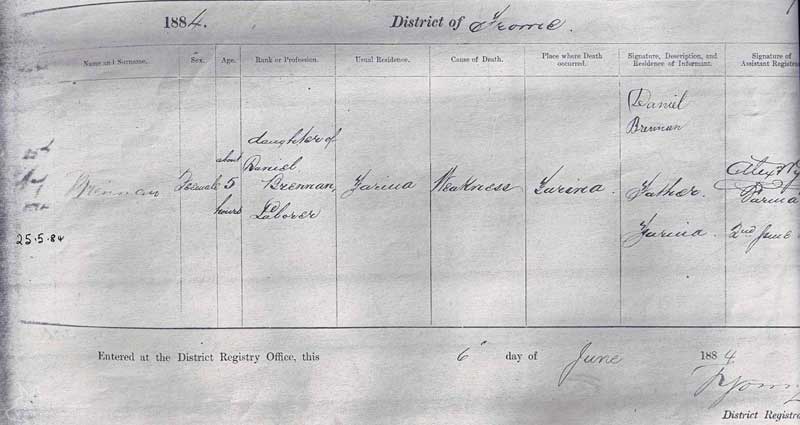 1884. District of Frome.
Name and Surname. Sex. Age. Rank or Profession. Usual Residence. Cause of Death. Place where Death occurred. Signature, Description, and Residence of Informant. Signature of Assistant Registrar
Brennan
Female
about
5
hours
daughter of
Daniel
Brennan,
Laborer
Farina
Weakness
Farina.
Daniel
Brennan
Father.
Farina.
Farina
2nd June
25.5.84
Entered at the District Registry Office, this 6 day of June 1884
District Registra